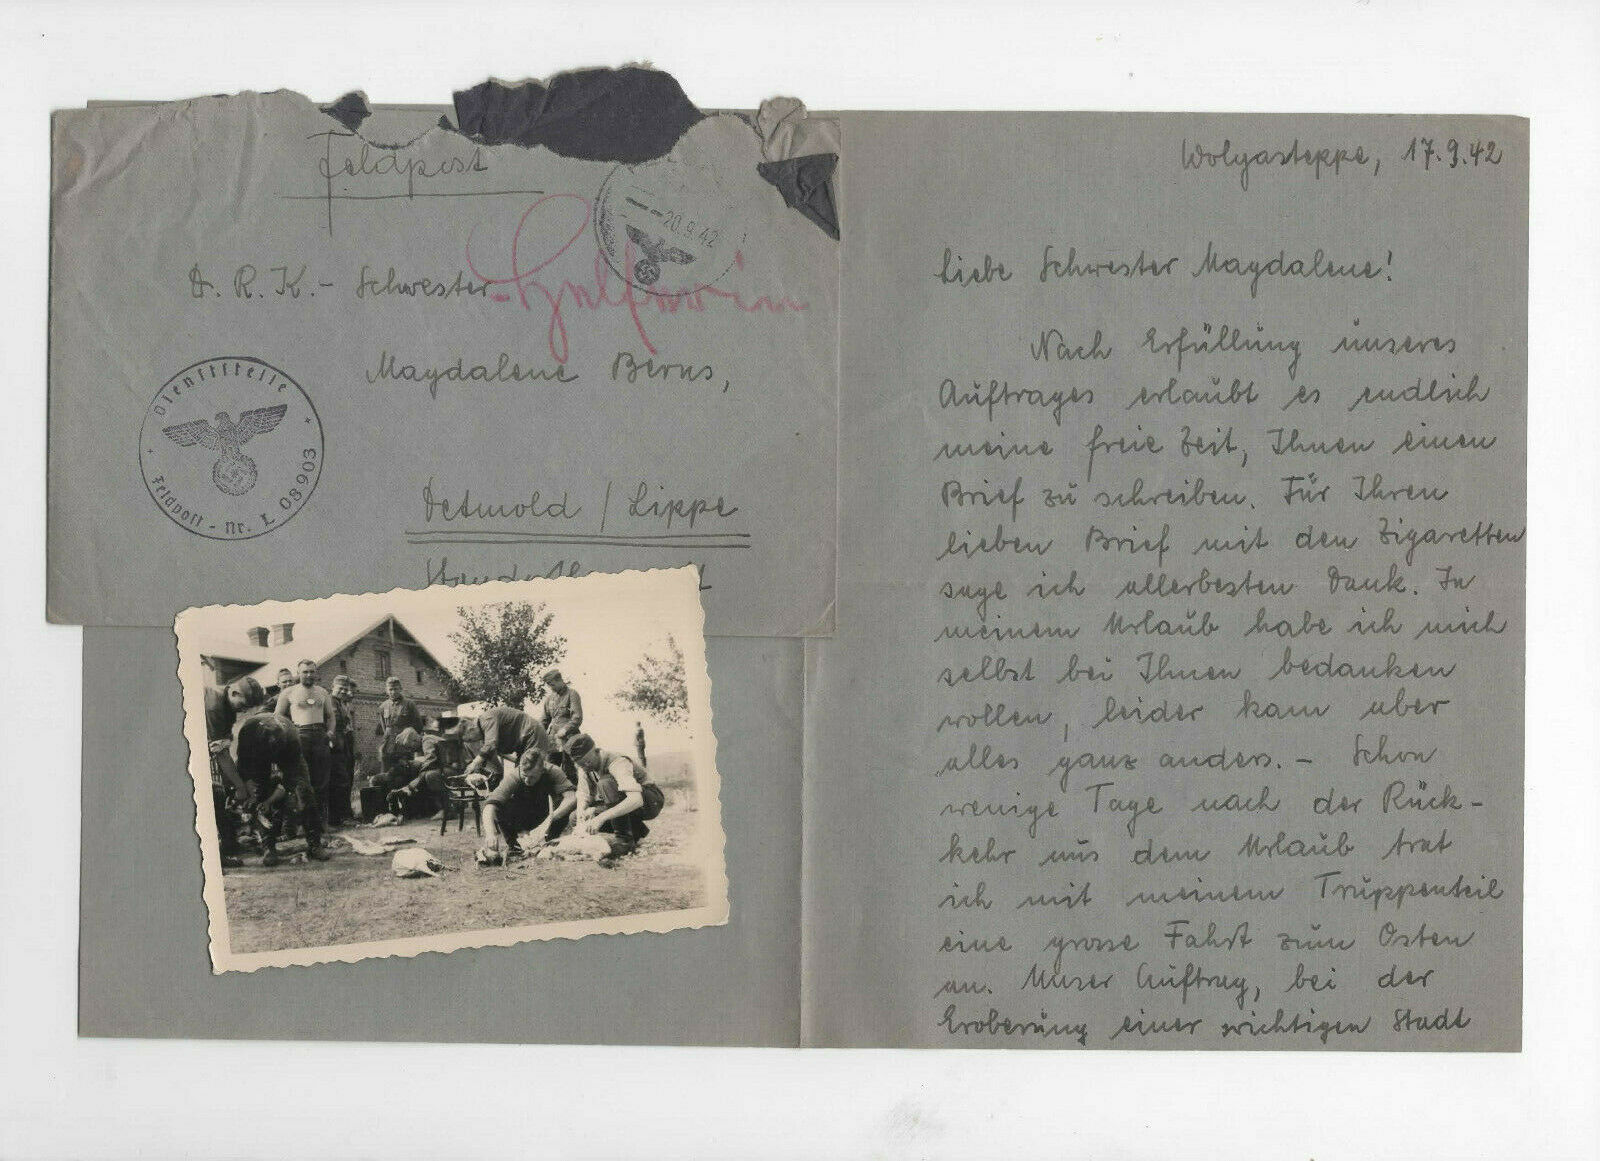 Feldpost
20.9.42
D.R.K.- Schwester
-Helferin
Magdalene Berns,
Dienststelle
Feldpost - Nr. L 08903
Detmold / Lippe
Wolgasteppe, 17.9.42
Liebe Schwester Magdalene!
Nach Erfüllung unseres
Auftrages erlaubt es endlich
meine freie Zeit, Ihnen einen
Brief zu schreiben. Für Ihren
lieben Brief mit den Zigaretten
sage ich allerbesten Dank. In
meinem Urlaub habe ich mich
selbst bei Ihnen bedanken
wollen, leider kam aber
alles ganz anders. – Schon
wenige Tage nach der Rück-
kehr aus dem Urlaub trat
ich mit meinem Truppenteil
eine grosse Fahrt zum Osten
an. Unser Auftrag, bei der
Eroberung einer wichtigen Stadt